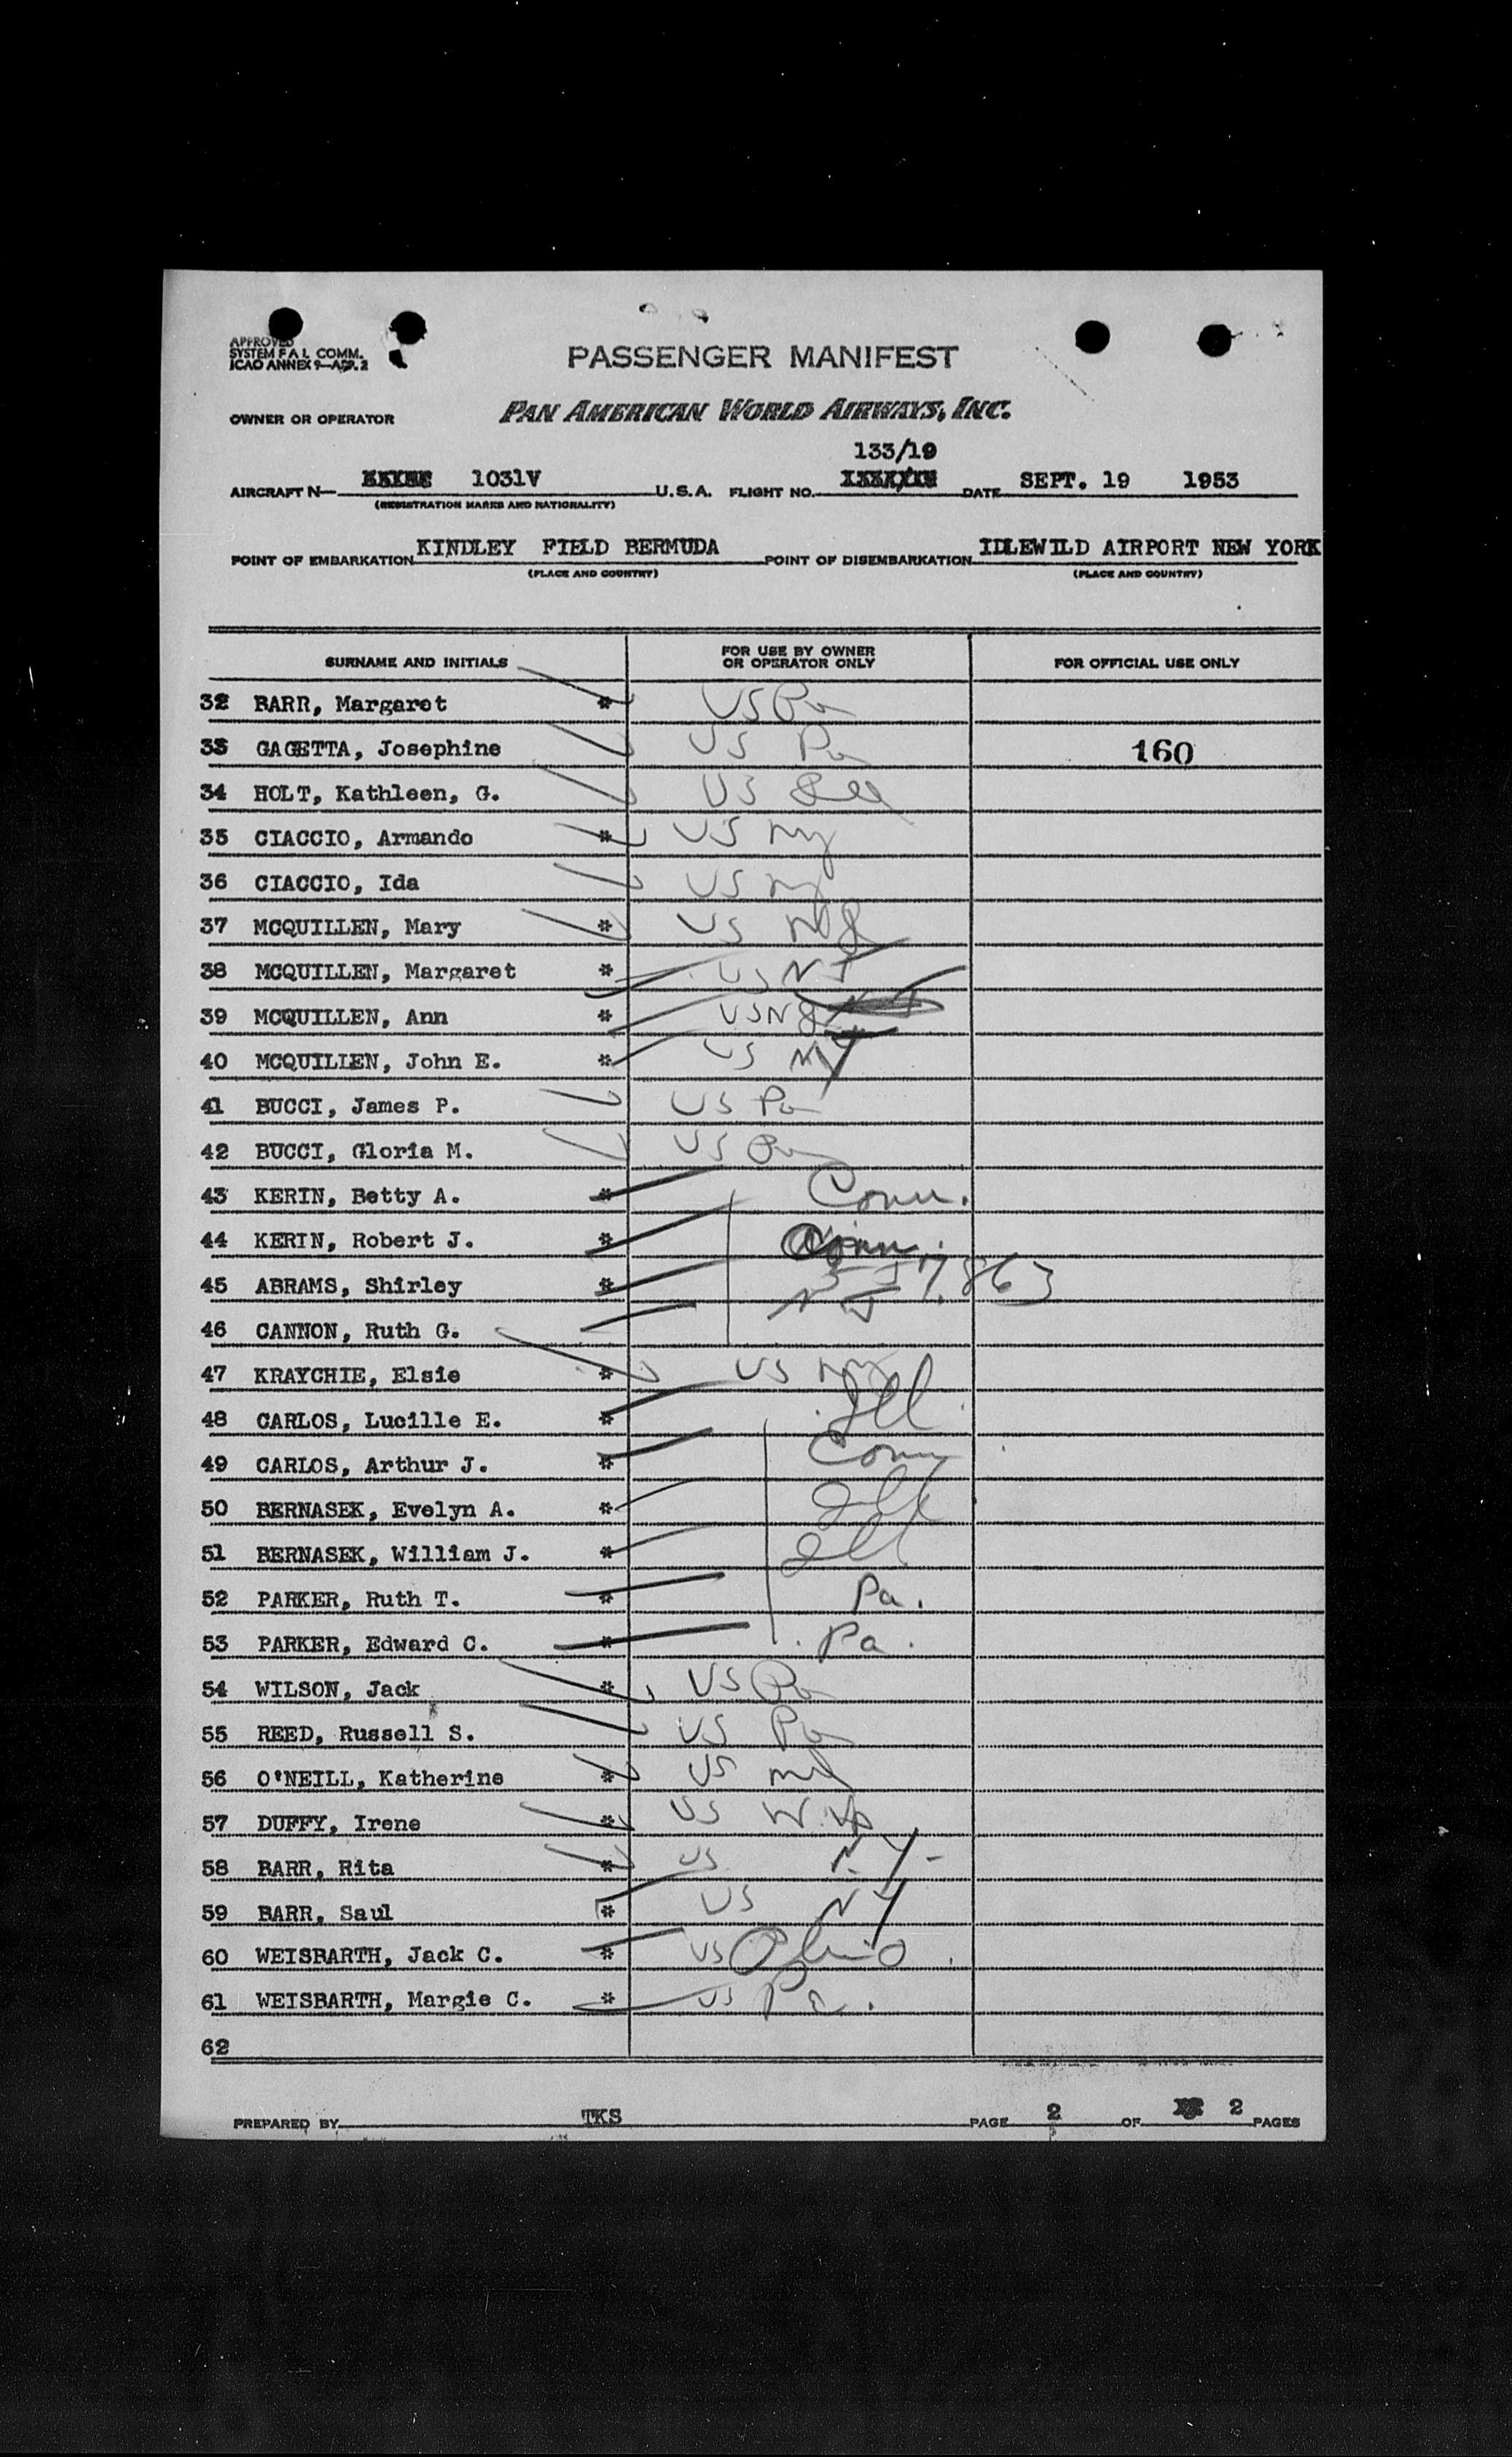 APPROVED
SYSTEM F A L COMM.
ICAO ANNEX 9—APP. 2
PASSENGER MANIFEST
OWNER OR OPERATOR PAN AMERICAN WORLD AIRWAYS, INC.
133/19
AIRCRAFT N— 1031V U.S.A. FLIGHT NO. DATE SEPT. 19 1953
(REGISTRATION MARKS AND NATIONALITY)
POINT OF EMBARKATION KINDLEY FIELD BERMUDA POINT OF DISEMBARKATION IDLEWILD AIRPORT NEW YORK
(PLACE AND COUNTRY) (PLACE AND COUNTRY)
SURNAME AND INITIALS FOR USE BY OWNER OR OPERATOR ONLY FOR OFFICIAL USE ONLY
32 BARR, Margaret * US Pa
33 GAGETTA, Josephine US Pa 160
34 HOLT, Kathleen, G. US Ill
35 CIACCIO, Armando * US ny
36 CIACCIO, Ida US ny
37 MCQUILLEN, Mary * US NJ
38 MCQUILLEN, Margaret * US NJ
39 MCQUILLEN, Ann * US NJ
40 MCQUILLEN, John E. * US NY
41 BUCCI, James P. US Pa
42 BUCCI, Gloria M. US Pa
43 KERIN, Betty A. * Conn.
44 KERIN, Robert J. * Conn.
45 ABRAMS, Shirley * 7863
46 CANNON, Ruth G. N J
47 KRAYCHIE, Elsie * US ny
48 CARLOS, Lucille E. * Ill
49 CARLOS, Arthur J. * Conn
50 BERNASEK, Evelyn A. * Ill
51 BERNASEK, William J. * Ill
52 PARKER, Ruth T. * Pa.
53 PARKER, Edward C. * Pa.
54 WILSON, Jack * US Pa
55 REED, Russell S. US Pa
56 O'NEILL, Katherine * US md
57 DUFFY, Irene * US W. Va
58 BARR, Rita * US N.Y.
59 BARR, Saul * US NY
60 WEISBARTH, Jack C. * US Ohio.
61 WEISBARTH, Margie C. * US Pa.
62
PREPARED BY TKS PAGE 2 OF 2 PAGES